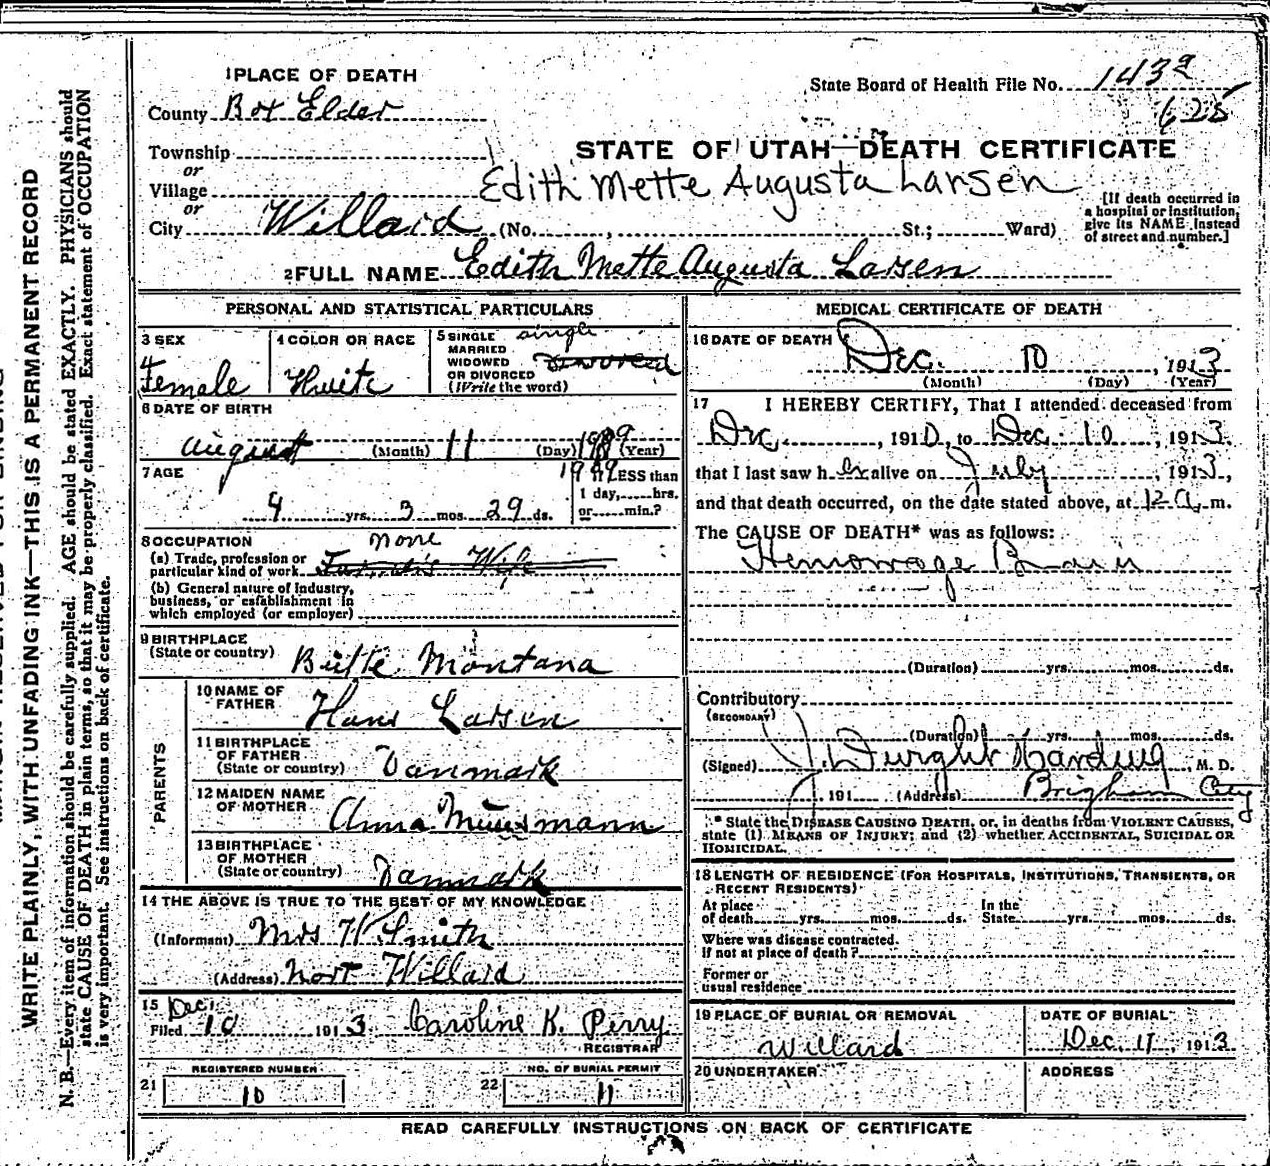 1 PLACE OF DEATH
State Board of Health File No. 1432
County Box Elder
625
Township
or
STATE OF UTAH—DEATH CERTIFICATE
Village
Edith Mette Augusta Larsen
or
City Willard (No. , St.; Ward)
[If death occurred in a hospital or institution, give its NAME instead of street and number.]
2 FULL NAME Edith Mette Augusta Larsen
PERSONAL AND STATISTICAL PARTICULARS
3 SEX
Female
4 COLOR OR RACE
Hwite
5 SINGLE
MARRIED
WIDOWED
OR DIVORCED
(Write the word)
single
Divorced
6 DATE OF BIRTH
August (Month) 11 (Day) (Year)
7 AGE
4 yrs. 3 mos. 29 ds.
LESS than
1 day, hrs.
or min.?
8 OCCUPATION
none
(a) Trade, profession or
particular kind of work Farmer's Wife
(b) General nature of industry,
business, or establishment in
which employed (or employer)
9 BIRTHPLACE
(State or country) Butte Montana
PARENTS
10 NAME OF
FATHER Hans Larsen
11 BIRTHPLACE
OF FATHER
(State or country) Danmark
12 MAIDEN NAME
OF MOTHER Anna
13 BIRTHPLACE
OF MOTHER
(State or country) Danmark
14 THE ABOVE IS TRUE TO THE BEST OF MY KNOWLEDGE
(Informant) Mrs H Smith
(Address) Nort Willard
15 Dec.
Filed 10 1913 Caroline K. Perry
REGISTRAR
21 REGISTERED NUMBER
10
22 NO. OF BURIAL PERMIT
11
MEDICAL CERTIFICATE OF DEATH
16 DATE OF DEATH
Dec. 10, 1913
(Month) (Day) (Year)
17 I HEREBY CERTIFY, That I attended deceased from
Dec. , 1910, to Dec. 10, 1913.
that I last saw her alive on July , 1913,
and that death occurred, on the date stated above, at 12 a. m.
The CAUSE OF DEATH* was as follows:
Hemorrage Brain
(Duration) yrs. mos. ds.
Contributory
(SECONDARY)
(Duration) yrs. mos. ds.
(Signed) J. Dwight Harding, M. D.
191 (Address) Brigham City
* State the DISEASE CAUSING DEATH, or, in deaths from VIOLENT CAUSES,
state (1) MEANS OF INJURY; and (2) whether ACCIDENTAL, SUICIDAL OR
HOMICIDAL.
18 LENGTH OF RESIDENCE (FOR HOSPITALS, INSTITUTIONS, TRANSIENTS, OR
RECENT RESIDENTS)
At place
of death yrs. mos. ds.
In the
State yrs. mos. ds.
Where was disease contracted.
if not at place of death?
Former or
usual residence
19 PLACE OF BURIAL OR REMOVAL
Willard
DATE OF BURIAL
Dec. 11, 1913
20 UNDERTAKER
ADDRESS
READ CAREFULLY INSTRUCTIONS ON BACK OF CERTIFICATE
WRITE PLAINLY, WITH UNFADING INK—THIS IS A PERMANENT RECORD
N. B.—Every item of information should be carefully supplied. AGE should be stated EXACTLY. PHYSICIANS should
state CAUSE OF DEATH in plain terms, so that it may be properly classified. Exact statement of OCCUPATION
is very important. See instructions on back of certificate.